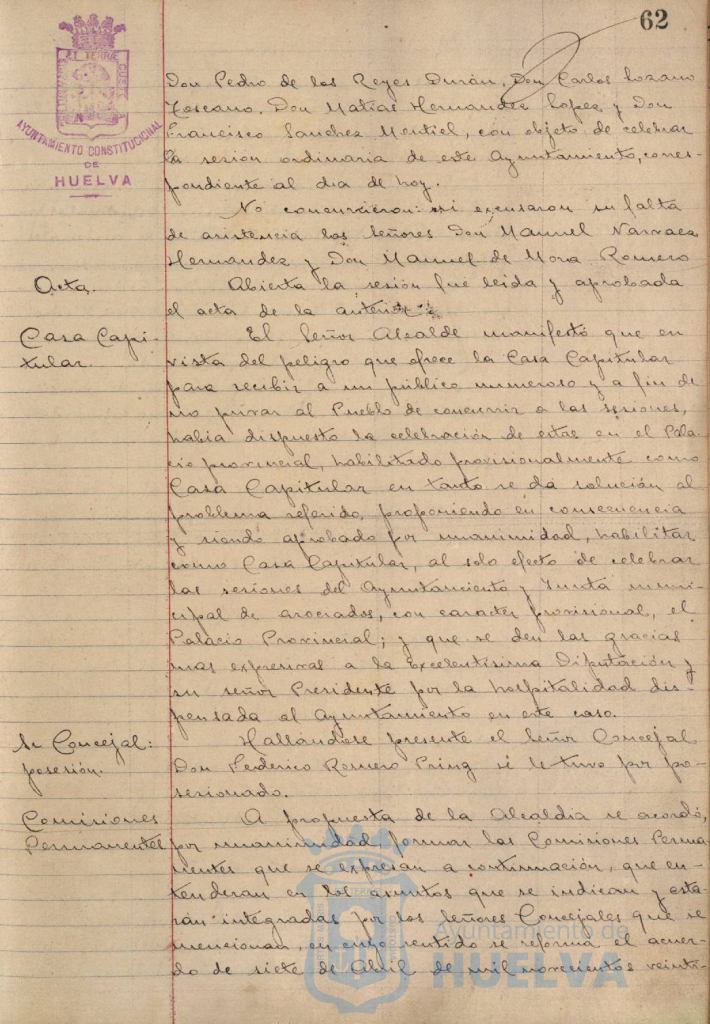 62
ET TERRÆ
AYUNTAMIENTO CONSTITUCIONAL
DE
HUELVA
Don Pedro de los Reyes Durán, Don Carlos Lozano
Toscano, Don Matías Hernandez Lopez y Don
Francisco Sanchez Montiel, con objeto de celebrar
la sesion ordinaria de este Ayuntamiento, corres-
pondiente al dia de hoy.
No concurrieron: ni excusaron su falta
de asistencia los Señores Don Manuel Narvaez
Hernandez y Don Manuel de Mora Romero
Acta.
Abierta la sesión fue leida y aprobada
el acta de la anterior.
Casa Capi-
tular.
El Señor Alcalde manifestó que en
vista del peligro que ofrece la Casa Capitular
para recibir a un público numeroso y a fin de
no privar al Pueblo de concurrir a las sesiones,
habia dispuesto la celebración de estas en el Pala-
cio provincial, habilitado provisionalmente como
Casa Capitular en tanto se da solución al
problema referido, proponiendo en consecuencia
y siendo aprobado por unanimidad, habilitar
como Casa Capitular, al solo efecto de celebrar
las sesiones del Ayuntamiento y Junta muni-
cipal de asociados, con caracter provisional, el
Palacio Provincial; y que se den las gracias
mas expresivas a la Excelentísima Diputación y
su señor Presidente por la hospitalidad dis-
pensada al Ayuntamiento en este caso.
Sr Concejal:
posesión.
Hallándose presente el Señor Concejal
Don Federico Romero Pring se le tuvo por po-
sesionado.
Comisiones
Permanentes
A propuesta de la Alcaldia se acordó,
por unanimidad, formar las Comisiones Perma-
nentes que se expresan a continuación, que en-
tenderan en los asuntos que se indican y esta-
rán integradas por los Señores Concejales que se
mencionan, en cuyo sentido se reforma el acuer-
do de siete de Abril de mil novecientos veinti-
Ayuntamiento de
HUELVA